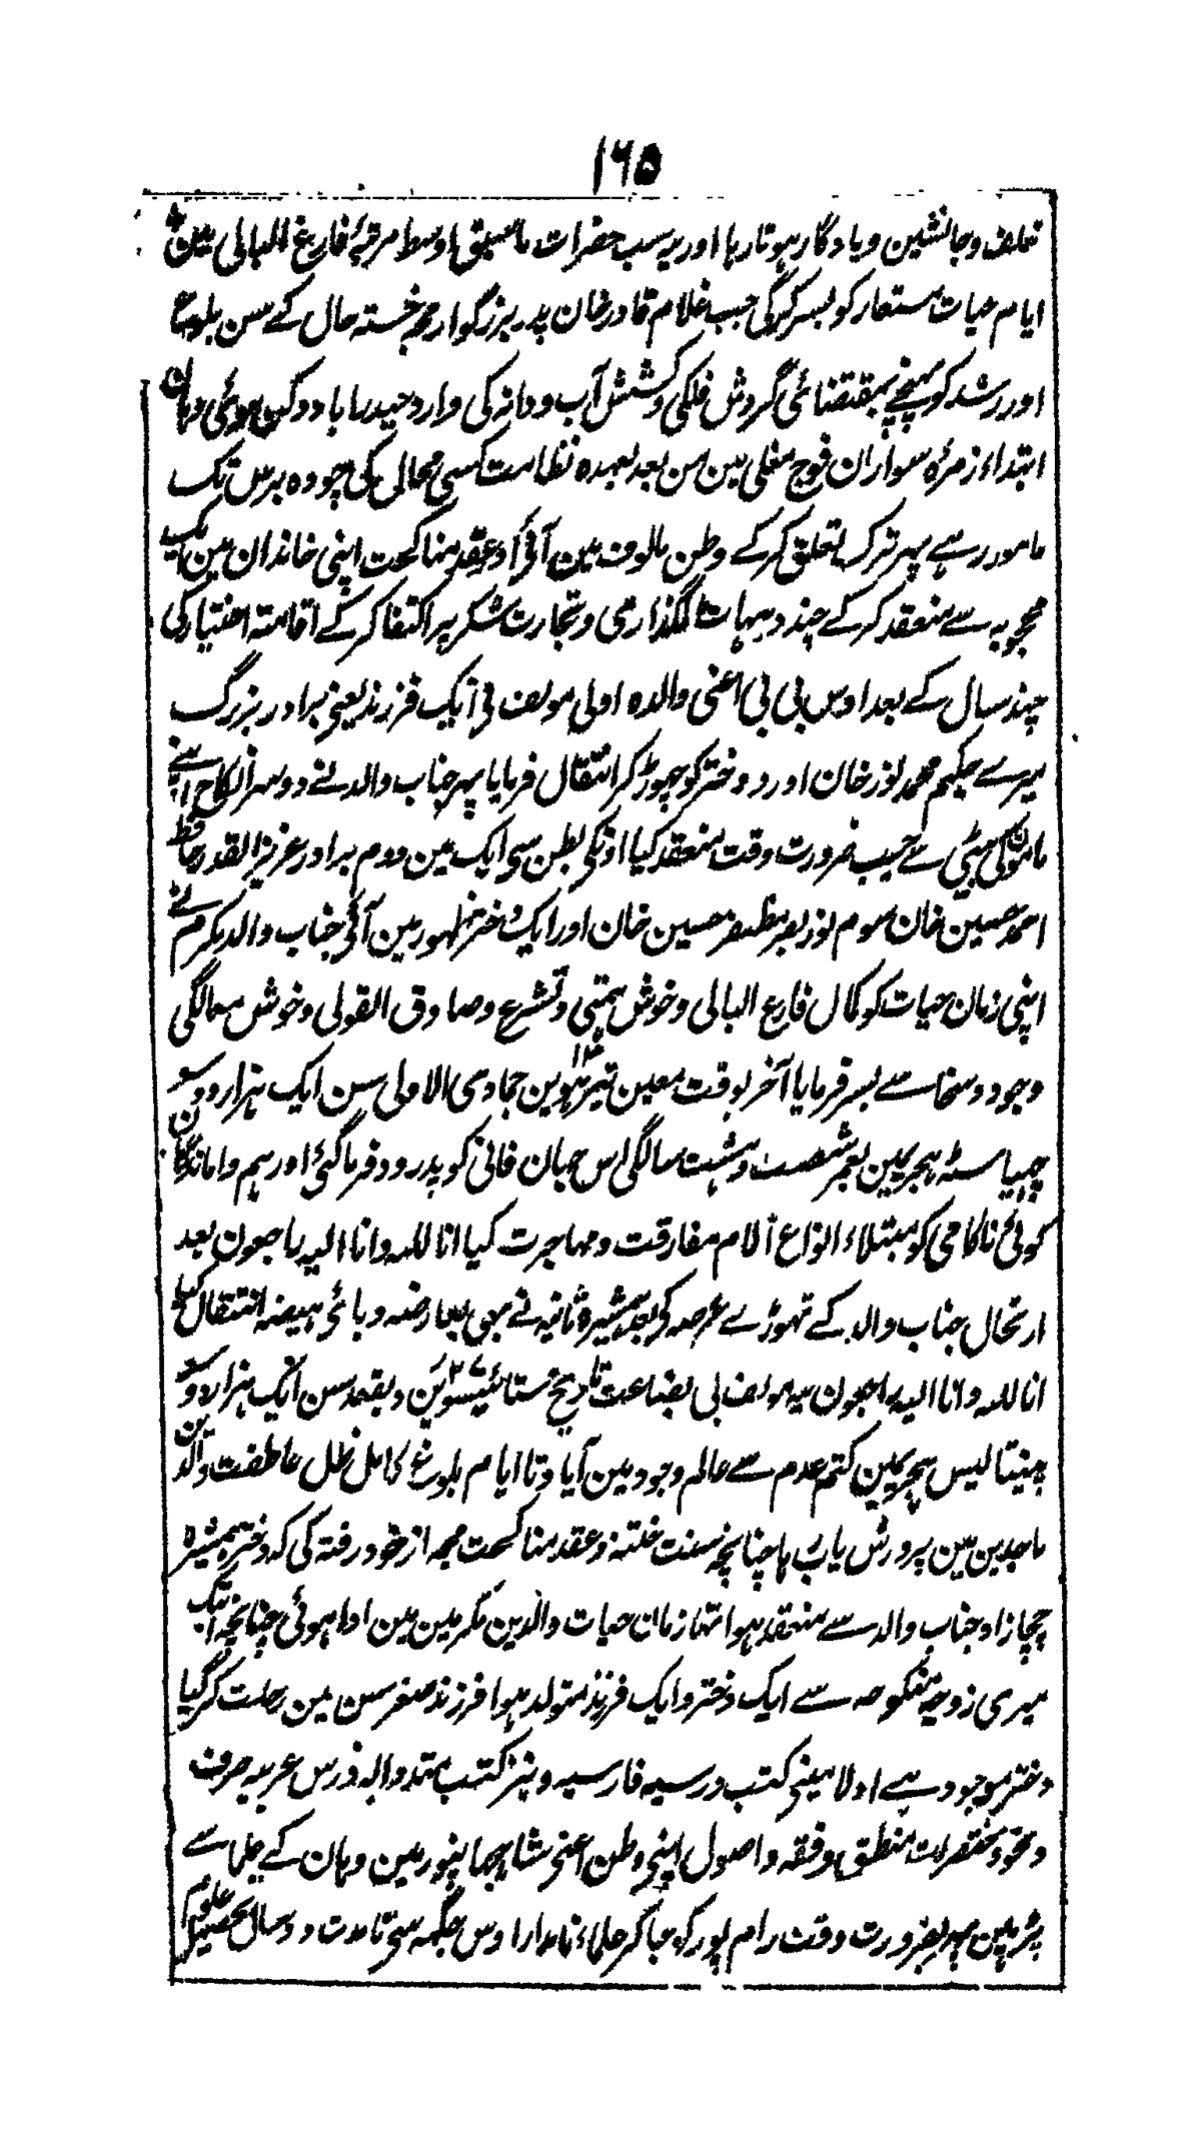 ۱۶۵
خلف و جانشین و یادگار ہوتا رہا اور یہ سب حضرات ماسبق اوسط مرفہ فارغ البالی مین
ایام حیات مستعار کو بسر کرگی جب غلام قادر خان پدر بزرگوار مجہ خستہ حال کے سن بلوغ
اور رشد کو پہنچے بمقتضائی گردش فلکی و کشش آب و دانہ کی وارد حیدراباد دکن ہوئی وہان
ابتداء زمرہ سواران فوج مغلی مین من بعد بعہدہ نظامت کسی محالی کی چودہ برس تک
مامور رہے پہر ترک تعلق کرکے وطن مالوف مین آئی اور عقد مناکحت اپنی خاندان مین ایک
محجوبہ سے منعقد کرکے چند دیہات مالگذاری و تجارت شکر پر اکتفا کرکے اقامتہ اختیار کی
چند سال کے بعد اوس بی بی اعنی والدہ اولی مولف نی ایک فرزند یعنی برادر بزرگ
میرے حکیم محمد نور خان اور دو دختر کو چہوڑ کر انتقال فرمایا پہر جناب والد نے دوسرا نکاح اپنے
مامون کی بیٹی سے حسب ضرورت وقت منعقد کیا اونکی بطن سی ایک مین دوم برادر عزیز القدر حافظ
احمد حسین خان سوم نور بصر مظفر حسین خان اور ایک دختر ظہور مین آئی جناب والد مکرم نے
اپنی زمان حیات کو کمال فارغ البالی و خوش ہمتی و تشرع و صادق القولی و خوش معاملگی
و جود و سخا سے بسر فرمایا آخر بوقت معین تیرہوین ۱۳ جمادی الاولی سن ایک ہزار دو سو
چہیاسٹہ ہجریمین بعمر شصت و ہشت سالگی اس جہان فانی کو پدرود فرماگئی اور ہم واماندگان
کوئی ناکامی کو مبتلاء انواع آلام مفارقت و مہاجرت کیا انا للہ وانا الیہ راجعون بعد
ارتحال جناب والد کے تہوڑے عرصہ کی بعد ہمشیرہ ثانیہ نے بہی بعارضہ وبائی ہیضہ انتقال کیا
انا للہ وانا الیہ راجعون یہ مولف بی بضاعت تاریخ ستائیسوین ۲۷ ذیقعد سن ایک ہزار دو سو
پینتالیس ہجریمین کتم عدم سے عالم وجود مین آیا و تا ایام بلوغ کامل ظل عاطفت والدین
ماجدین مین پرورش یاب رہا چنانچہ سنت ختنہ و عقد مناکحت مجہ از خود رفتہ کی کہ دختر ہمشیرہ
چچازاد جناب والد سے منعقد ہوا تہا زمان حیات والدین مکرمین مین ادا ہوئی چنانچہ ابتک
میری زوجہ منکوحہ سے ایک دختر و ایک فرزند متولد ہوا فرزند صغر سن مین رحلت کرگیا
دختر موجود ہے اولا مینی کتب درسیہ فارسیہ و نیز کتب متداولہ درس عربیہ صرف
و نحو و مختصرات منطق و فقہ و اصول اپنی وطن اعنی شاہجہانپور مین وہان کے علما سے
پڑہین پہر بضرورت وقت رام پور کو جاکر علماء نامدار اوس جگہہ سی تا مدت دو سال تحصیل علوم